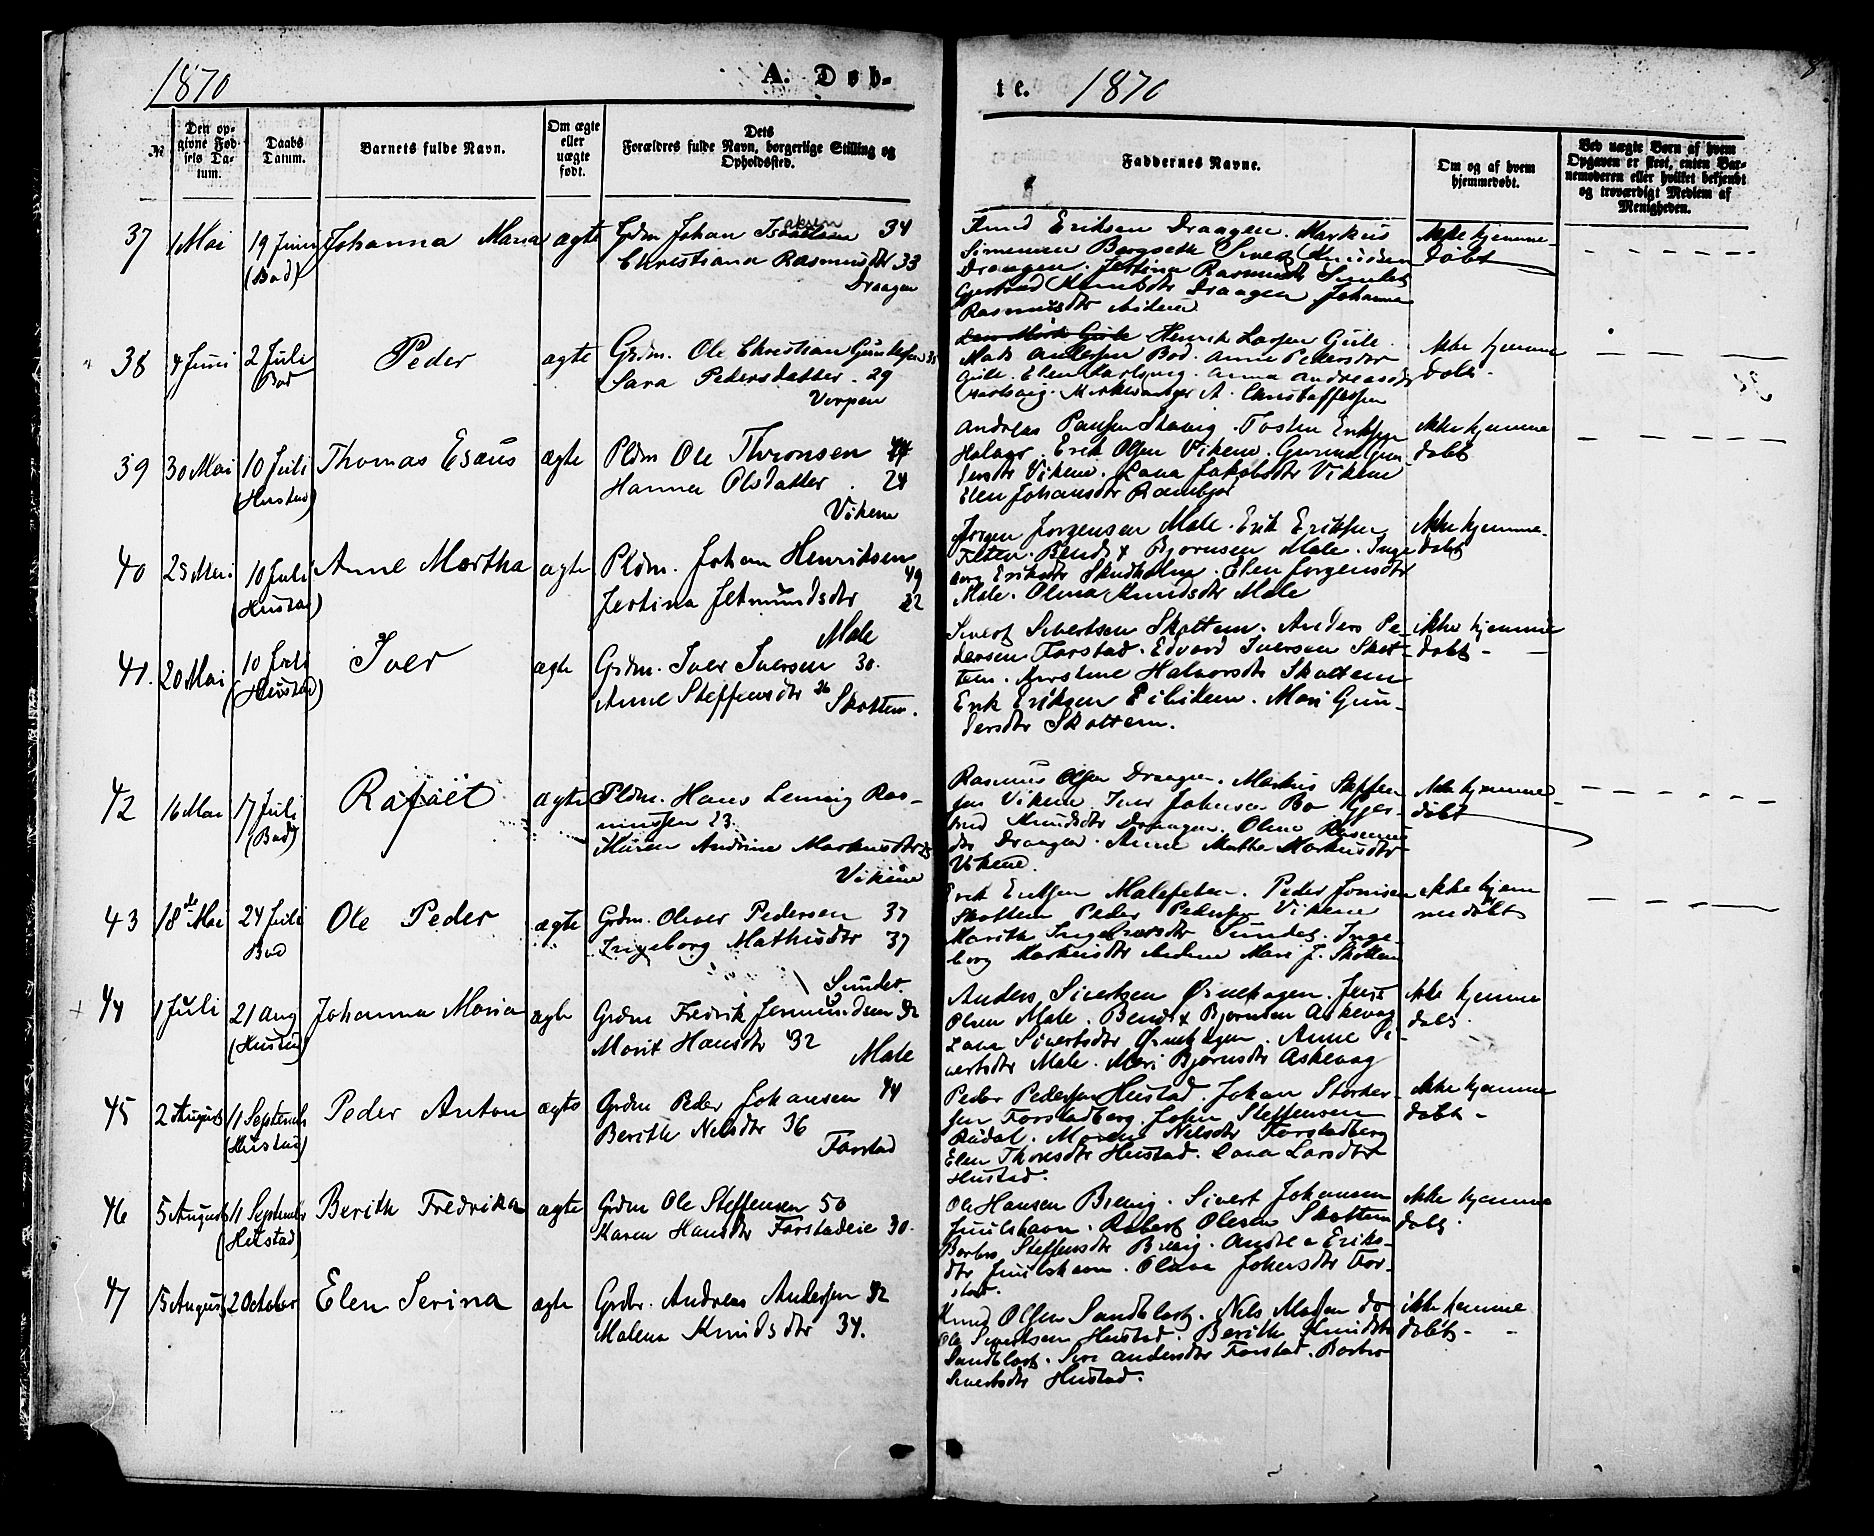 1870 A. Døb-
te. 1870
№ Den opgivne Fødsels Datum. Daabs Datum. Barnets fulde Navn. Om ægte eller uægte født. Dets Forældres fulde Navn, borgerlige Stilling og Opholdssted.
Faddernes Navne. Om og af hvem hjemmedøbt. Ved uægte Børn af hvem Opgaven er skeet, enten Barnemoderen eller hvilket bekjendt og troværdigt Medlem af Menigheden.
37 1 Mai 19 Juni Johanna Maria ægte Grdm Johan 34
(Bod) Christiana Rasmusdtr 33
Draagen
Knud Eriksen Draagen. Markus
Simensen Bergseth Sivert Knudsen
Draagen. Jertina Rasmusdtr
Gjertrud Knudsdtr Draagen Johanna
Rasmusdtr
Ikke hjemme-
døbt
38 4 Juni 2 Juli Peder ægte Grdm. Ole Christian
Bod Sara Pedersdatter. 29
Verpen
Henrik Larsen Gule.
Mats Andersen Bod. Anne Pedersdtr
Gule. Elen
Christoffersen
Ikke hjemme
døbt.
39 30 Mai 10 Juli Thomas Esaus ægte Pldm Ole Thronsen
(Hustad) Hanna Olsdatter. 24
Vikene
Andreas Paulsen Stavig. Tosten Eriksen
Erik Olsen Vikene. Gunnild Gun-
dersdtr Vikene. Lava Jakobsdtr Vikene
Elen Johansdtr
Ikke hjemme
døbt
40 25 Mai 10 Juli Anne Martha ægte Pldm. Johan Henriksen
49
(Hustad) Jertina Jetmundsdtr 32
Male
Jørgen Jørgensen Male. Erik Eriksen
Bendt Bjørnsen Male. Inge-
borg Eriksdtr Skudholm. Elen Jørgensdtr
Male. Olina Knudsdtr Male
Ikke hjemme-
døbt
41. 20 Mai 10 Juli Iver ægte Grdm. Iver Iversen 30.
(Hustad) Anne Steffensdtr 26 Skottem.
Sivert Sivertsen Skottem. Anders Pe-
dersen Farstad. Edvard Iversen Skot-
tem. Halvorsdtr Skottem
Erik Eriksen. Mari Gun-
dersdtr Skottem.
ikke hjemme
døbt -
42 16 Mai 17 Juli Rafael ægte Pldm. Hans Ras-
(Bod) mussen 23
Maren Andrine Markusdtr
Vikene
Rasmus Olsen Draagen. Markus Steffen-
sen Vikene. Iver Johnsen Bo Gjer-
trud Knudsdtr Draagen. Oline Rasmus-
dtr Draagen. Anne Marthe Markusdtr
Vikene.
Ikke hjemme
døbt
43 18de Mai 24 Juli Ole Peder ægte Grdm. Oliver Pedersen 37
Bod Ingeborg Mathiasdtr 37
Sundet.
Erik Eriksen. Peder Jonsen
Skottem Peder Pedersen Vikene
Marith Sundet. Inge-
borg Markusdtr Mari J. Skottem
ikke hjem
medøbt
44 1 Juli 21 Aug Johanna Maria ægte Grdm Fredrik Jetmundsen 32
(Hustad) Marit Hansdtr 32
Male
Anders Sivertsen Ørnehagen. Jens
Olsen Male. Bendt Bjørnsen Askevag
Lava Sivertsdtr Ørnehagen. Anne Si-
vertsdtr Male. Mari Bjørnsdtr Askevag
Ikke hjemme
døbt.
45 2 August 11 September Peder Anton ægte Grdm Peder Johansen 44
(Hustad) Berith Nelsdtr 36
Farstad
Peder Pedersen Hustad. Johan Storker-
sen Farstadberg. John Steffensen
Rudal. Nelsdtr Farstadberg
Elen Thoresdtr Hustad. Lava Larsdtr
Hustad.
Ikke hjemme
døbt -
46 5 August 11 September Berith Fredrika ægte Grdm Ole Steffensen 50
(Hustad) Karen Hansdtr Farstadeie 30.
Ole Hansen Breivig. Sivert Johansen
Juulshavn. Robert Olesen Skottem
Barbro Steffensdtr Breivig. Andrea Eriks-
dtr Juulshavn. Olava Johansdtr Far-
stad.
Ikke hjemme
døbt.
47 15 August 2 October Elen Serina ægte Grdbr. Andreas Andersen 32
Malena Knudsdtr 34.
Knud Olsen Sandblost. Nels Madsen do
Ole Sivertsen Hustad. Berith Knudsdtr
Sandblost. Siri Andersdtr Farstad. Barbro
Sivertsdtr Hustad.
ikke hjemme
døbt -